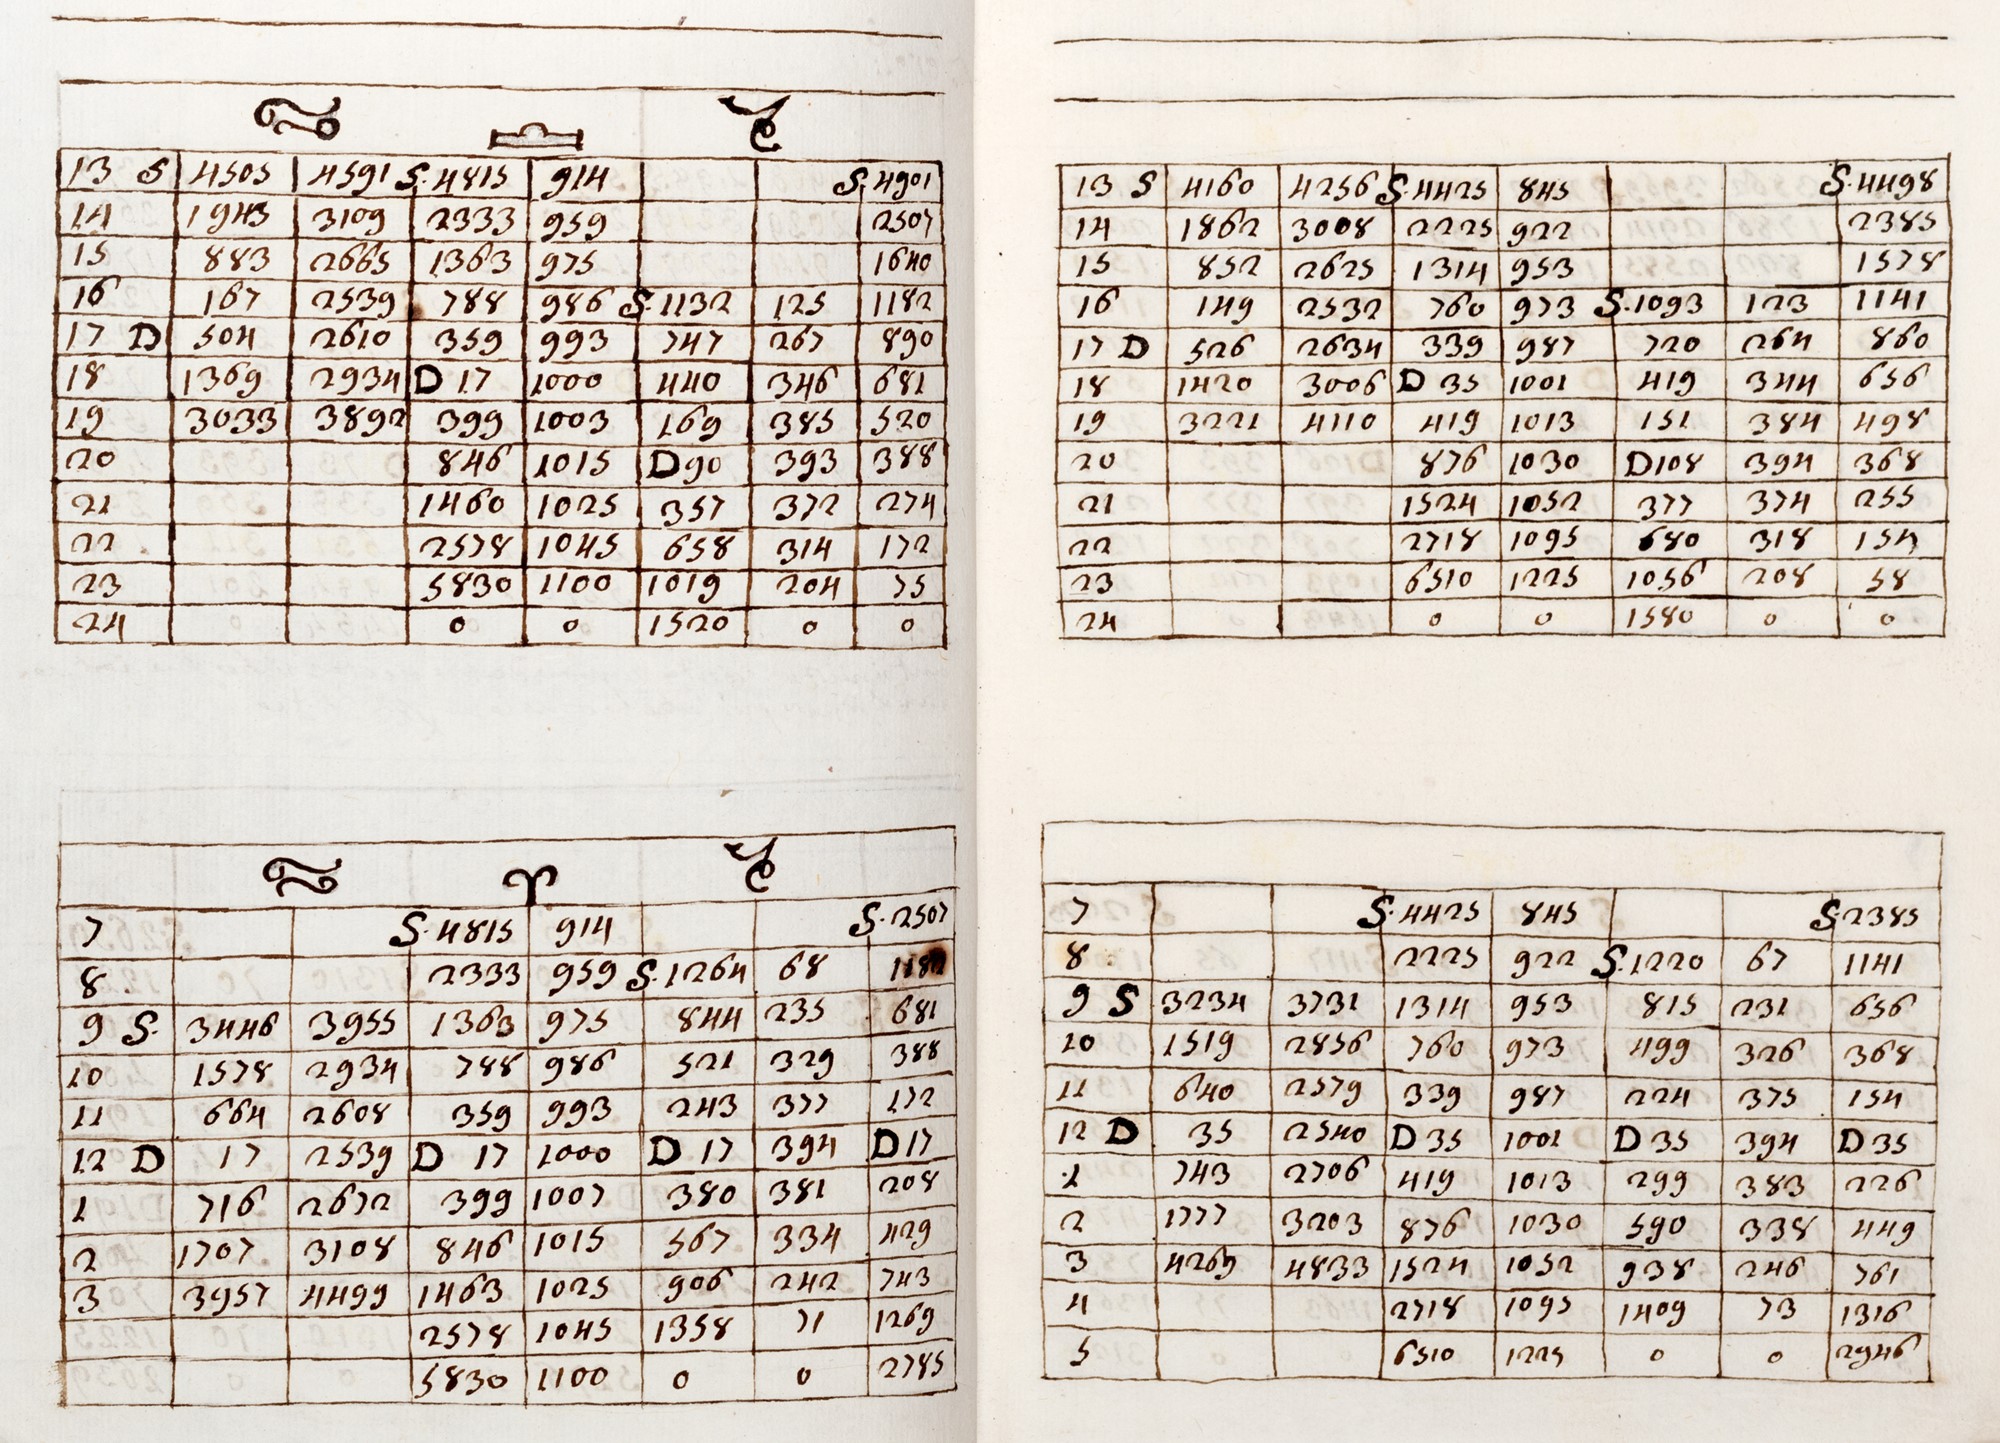 ♋ ♎ ♑
13 S 4505 4591 S. 4815 914 S. 4901
14 1943 3109 2333 959 2507
15 883 2665 1363 975 1640
16 167 2539 788 986 S. 1132 125 1182
17 D 504 2610 359 993 747 267 890
18 1369 2934 D 17 1000 440 346 681
19 3033 3892 399 1003 169 385 520
20 846 1015 D 90 393 388
21 1460 1025 357 372 274
22 2578 1045 658 314 172
23 5830 1100 1019 204 75
24 0 0 1520 0 0
♋ ♈ ♑
7 S. 4815 914 S. 2507
8 2333 959 S. 1264 68
9 S. 3446 3955 1363 975 844 235 681
10 1578 2934 788 986 521 329 388
11 664 2608 359 993 243 377 172
12 D 17 2539 D 17 1000 D 17 394 D 17
1 716 2672 399 1007 380 381 208
2 1707 3108 846 1015 567 334 429
3 3957 4499 1463 1025 906 242 743
2578 1045 1358 71 1269
5830 1100 0 0 2785
13 S 4160 4256 S. 4425 845 S. 4498
14 1862 3008 2225 922 2385
15 852 2625 1314 953 1578
16 149 2532 760 973 S. 1093 123 1141
17 D 526 2634 339 987 720 264 860
18 1420 3006 D 35 1001 419 344 656
19 3221 4110 419 1013 151 384 498
20 876 1030 D 108 394 368
21 1524 1052 377 374 255
22 2718 1095 680 318 154
23 6510 1225 1056 208 58
24 0 0 1580 0 0
7 S. 4425 845 S. 2385
8 2225 922 S. 1220 67 1141
9 S 3234 3731 1314 953 815 231 656
10 1519 2856 760 973 499 326 368
11 640 2579 339 987 224 375 154
12 D 35 2540 D 35 1001 D 35 394 D 35
1 743 2706 419 1013 299 383 226
2 1777 3203 876 1030 590 338 449
3 4269 4833 1524 1052 938 246 761
4 2718 1095 1409 73 1316
5 6510 1225 0 0 2946